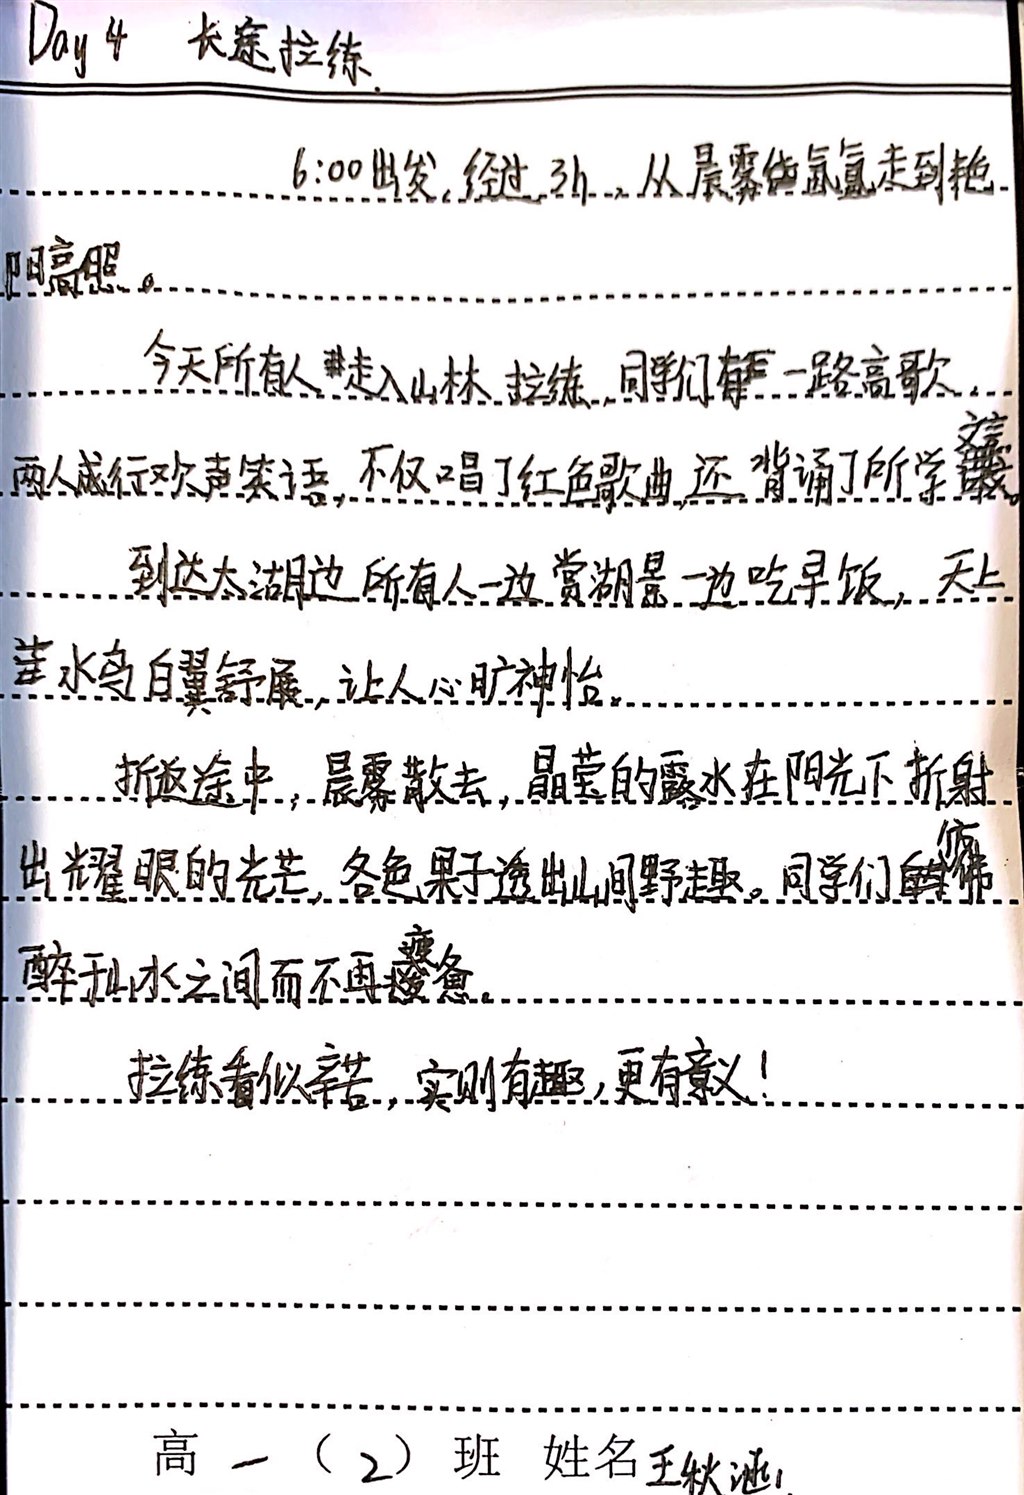 Day 4 长途拉练
6:00出发,经过3h,从晨雾氤氲走到艳
阳高照。
今天所有人走入山林拉练,同学们一路高歌,
两人成行欢声笑语,不仅唱了红色歌曲,还背诵了所学文言。
到达太湖边所有人一边赏湖景一边吃早饭,天上
水鸟白翼舒展,让人心旷神怡。
折返途中,晨雾散去,晶莹的露水在阳光下折射
出耀眼的光芒,各色果子透出山间野趣。同学们仿佛
醉于山水之间而不再疲惫。
拉练看似辛苦,实则有趣,更有意义!
高一(2)班 姓名王秋涵